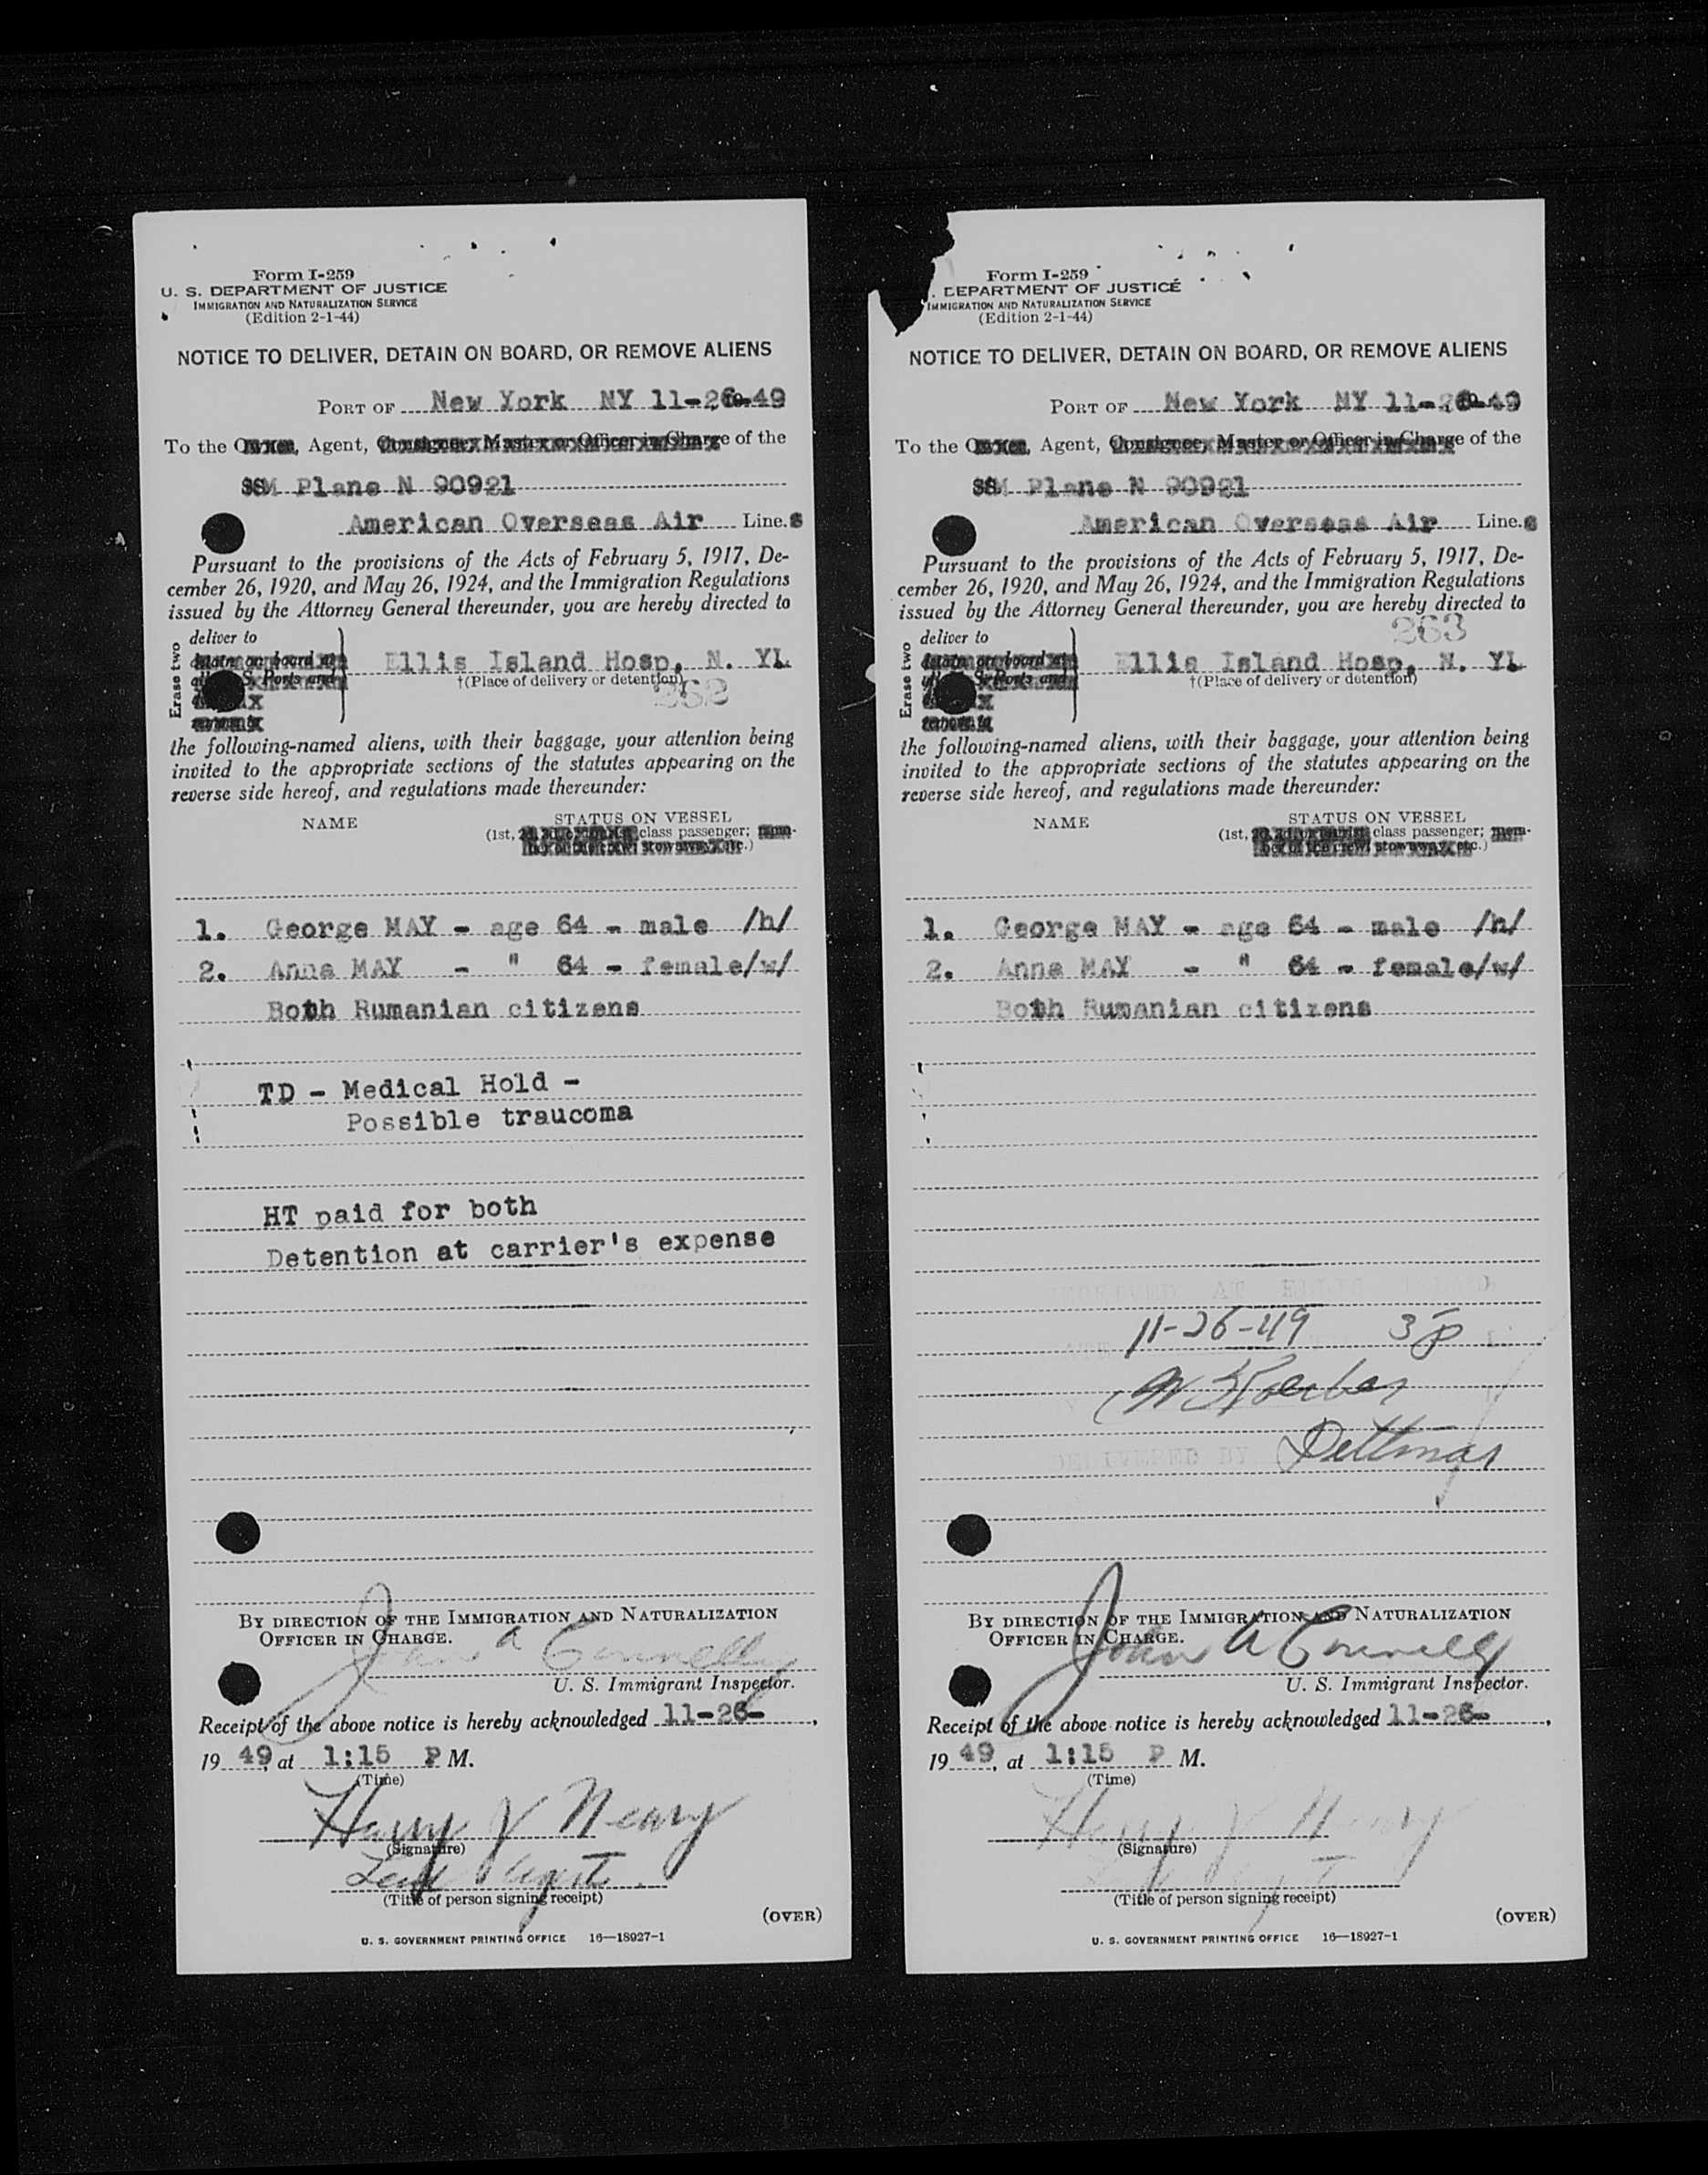 Form I-259
U. S. DEPARTMENT OF JUSTICE
IMMIGRATION AND NATURALIZATION SERVICE
(Edition 2-1-44)
NOTICE TO DELIVER, DETAIN ON BOARD, OR REMOVE ALIENS
PORT OF New York NY 11-26-49
To the Owner, Agent, Consignee, Master or Officer in Charge of the
SSM Plane N 90921
American Overseas Air Line.s
Pursuant to the provisions of the Acts of February 5, 1917, De-
cember 26, 1920, and May 26, 1924, and the Immigration Regulations
issued by the Attorney General thereunder, you are hereby directed to
Erase two
deliver to
detain on board at
all U. S. Ports and
remove to
Ellis Island Hosp. N. YL
†(Place of delivery or detention)
262
the following-named aliens, with their baggage, your attention being
invited to the appropriate sections of the statutes appearing on the
reverse side hereof, and regulations made thereunder:
NAME
STATUS ON VESSEL
(1st, 2d, 3d, or tourist class passenger; mem-
ber of the crew, stowaway, etc.)
1. George MAY - age 64 - male /h/
2. Anna MAY - " 64 - female/w/
Both Rumanian citizens
TD - Medical Hold -
Possible traucoma
HT paid for both
Detention at carrier's expense
BY DIRECTION OF THE IMMIGRATION AND NATURALIZATION
OFFICER IN CHARGE.
John A Connelly
U. S. Immigrant Inspector.
Receipt of the above notice is hereby acknowledged 11-26-,
19 49, at 1:15 P M.
(Time)
Harry J Neary
(Signature)
Agent
(Title of person signing receipt)
(OVER)
U. S. GOVERNMENT PRINTING OFFICE 16—18927-1
Form I-259
. DEPARTMENT OF JUSTICE
IMMIGRATION AND NATURALIZATION SERVICE
(Edition 2-1-44)
NOTICE TO DELIVER, DETAIN ON BOARD, OR REMOVE ALIENS
PORT OF New York NY 11-26-49
To the Owner, Agent, Consignee, Master or Officer in Charge of the
SSM Plane N 90921
American Overseas Air Line.s
Pursuant to the provisions of the Acts of February 5, 1917, De-
cember 26, 1920, and May 26, 1924, and the Immigration Regulations
issued by the Attorney General thereunder, you are hereby directed to
263
Erase two
deliver to
detain on board at
all U. S. Ports and
remove to
Ellis Island Hosp. N. YL
†(Place of delivery or detention)
the following-named aliens, with their baggage, your attention being
invited to the appropriate sections of the statutes appearing on the
reverse side hereof, and regulations made thereunder:
NAME
STATUS ON VESSEL
(1st, 2d, 3d, or tourist class passenger; mem-
ber of the crew, stowaway, etc.)
1. George MAY - age 64 - male /h/
2. Anna MAY - " 64 - female/w/
Both Rumanian citizens
11-26-49 3 P
W Koerber
DELIVERED BY Dettmar
BY DIRECTION OF THE IMMIGRATION AND NATURALIZATION
OFFICER IN CHARGE.
John A Connelly
U. S. Immigrant Inspector.
Receipt of the above notice is hereby acknowledged 11-26-,
19 49, at 1:15 P M.
(Time)
Harry J Neary
(Signature)
(Title of person signing receipt)
(OVER)
U. S. GOVERNMENT PRINTING OFFICE 16—18927-1